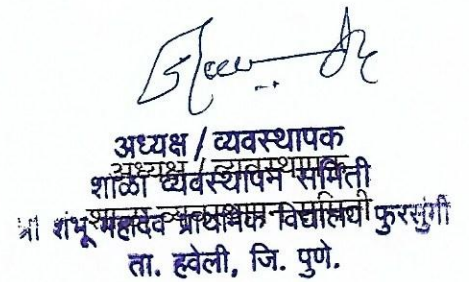 अध्यक्ष / व्यवस्थापक
अध्यक्ष / व्यवस्थापक
शाळा व्यवस्थापन समिती
श्री शंभू महादेव प्राथमिक विद्यालय फुरसुंगी
ता. हवेली, जि. पुणे.